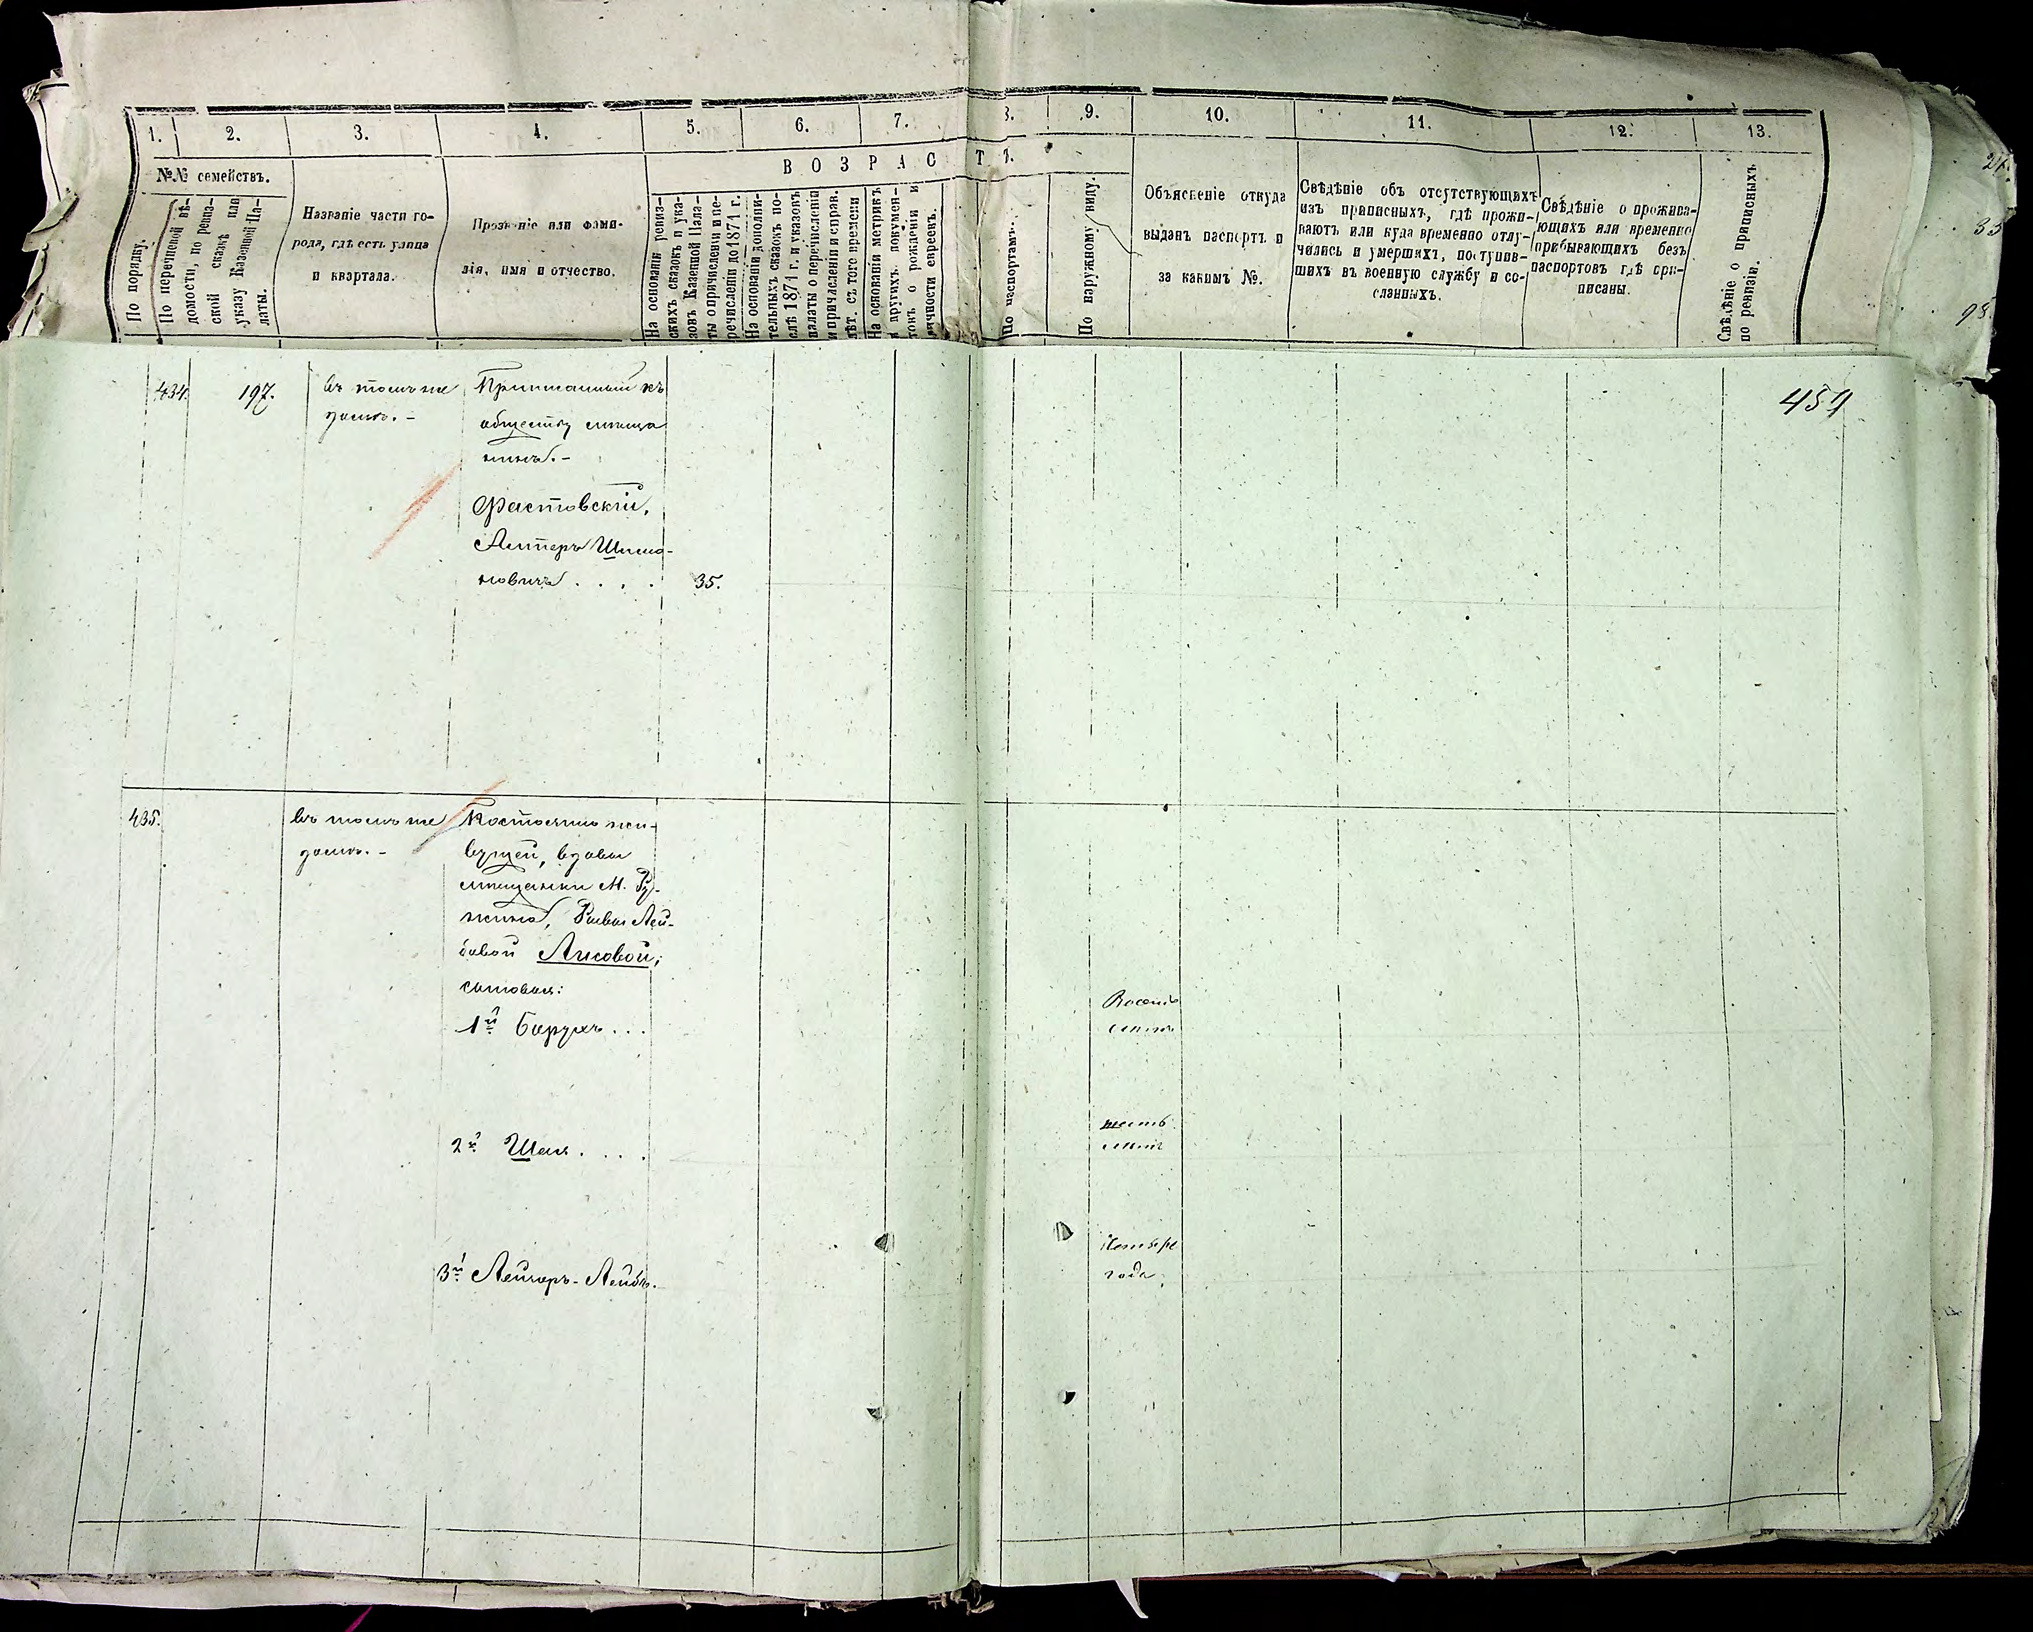 1. 2. 3. 4. 5. 6. 7. 8. 9. 10. 11. 12. 13.
№№ семействъ.
ВОЗРАСТЪ.
По порядку.
По перечневой вѣ-
домости, по ревиз-
ской сказкѣ или
указу Казенной Па-
латы.
Названіе части го-
рода, гдѣ есть улица
и кварталъ.
Прозваніе или фами-
лія, имя и отчество.
На основаніи ревиз-
скихъ сказокъ и ука-
зовъ Казенной Пала-
ты о причисленіи и пе-
речисленіи до 1871 г.
На основаніи дополни-
тельныхъ сказокъ по-
слѣ 1871 г. и указовъ
палаты о перечисленіи
и причисленіи и справ.
лѣт. съ того времени
На основаніи метрикъ
и другихъ докумен-
токъ о рожденіи и
личности евреевъ.
По паспортамъ.
По наружному виду.
Объясненіе откуда
выданъ паспортъ и
за какимъ №.
Свѣдѣніе объ отсутствующихъ
изъ приписныхъ, гдѣ прожи-
ваютъ или куда временно отлу-
чились и умершихъ, поступив-
шихъ въ военную службу и со-
сланныхъ.
Свѣдѣніе о прожива-
ющихъ или временно
прибывающихъ безъ
паспортовъ гдѣ при-
писаны.
Свѣдѣніе о приписныхъ
по ревизіи.
35
98.
434. 197. въ томъ же
домѣ. –
Приписанный къ
обществу мѣща
нинъ. –
Фастовскій,
Алтеръ Шимо-
новичъ . . . . 35.
435. въ томъ же
домѣ. –
Постоянно жи-
вущей, вдовы
мѣщанки М. Ру-
жина, Ривы Лей-
бовой Лисовой;
сыновья:
1й Барухъ . . . Восемь
лѣтъ
2й Шая . . . . шесть
лѣтъ
3й Лейзоръ-Лейба. Четыре
года.